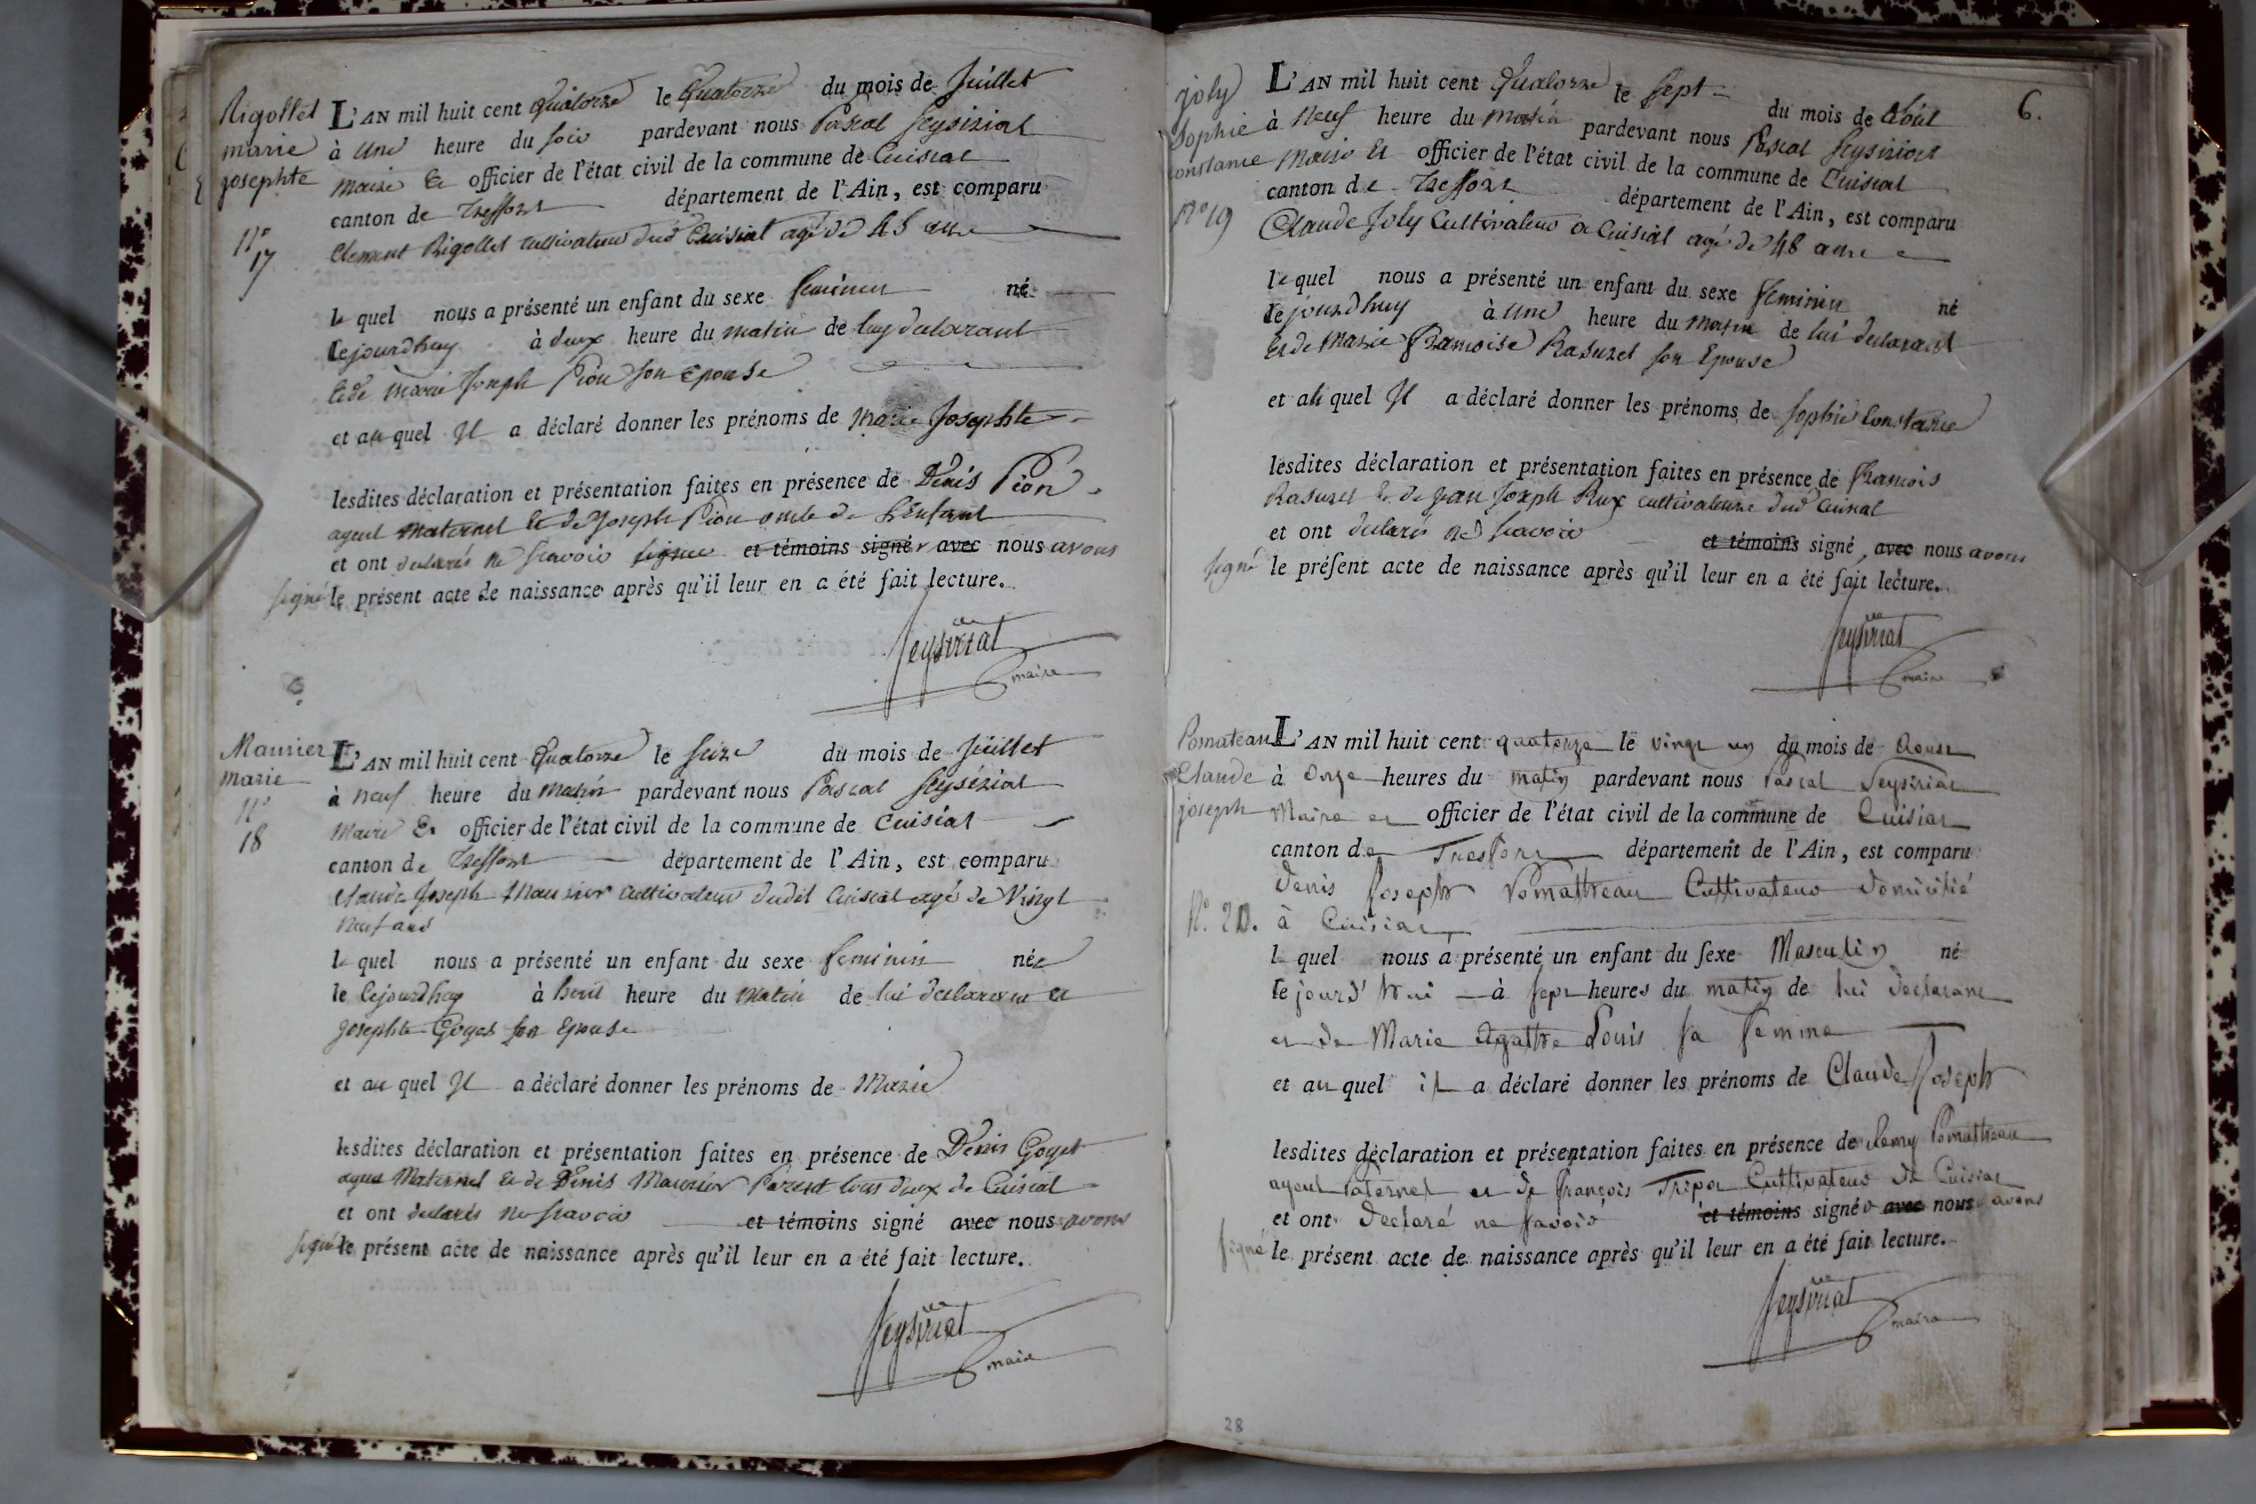 Rigollet
marie
josephte
N.º
17
L'AN mil huit cent Quatorze le Quatorze du mois de Juillet
à Une heure du soir pardevant nous Pascal Seysiriat
maire et officier de l'état civil de la commune de Cuisiat
canton de Treffort département de l'Ain, est comparu
Clement Rigollet cultivateur dud Cuisiat agé de 45 ans
le quel nous a présenté un enfant du sexe feminin né
lejourdhuy à deux heure du matin de luy declarant
et de marie Joseph Pion son epouse
et au quel Il a déclaré donner les prénoms de Marie Josephte
lesdites déclaration et présentation faites en présence de Denis Pion
ayeul maternel et de Joseph Pion oncle de l'Enfant
et ont declarés ne scavoir signer et témoins signé avec nous avons
signé le présent acte de naissance après qu'il leur en a été fait lecture.
Seysiriat
maire
Maurier
marie
N.º
18
L'AN mil huit cent Quatorze le seize du mois de Juillet
à neuf heure du matin pardevant nous Pascal Seysiriat
Maire Et officier de l'état civil de la commune de Cuisiat
canton de Treffort département de l'Ain, est comparu
Claude Joseph Maurier cultivateur dudit Cuisiat agé de Vingt
neuf ans
le quel nous a présenté un enfant du sexe feminin née
le Cejourdhuy à huit heure du matin de lui declarant et
josephte Goyet son Epouse
et au quel Il a déclaré donner les prénoms de Marie
lesdites déclaration et présentation faites en présence de Denis Goyet
ayeul Maternel et de Denis Maurier Parent tous deux de Cuisiat
et ont declarés ne scavoir et témoins signé avec nous avons
signé le présent acte de naissance après qu'il leur en a été fait lecture.
Seysiriat
maire
6.
joly
Sophie
Constance
N.º 19
L'AN mil huit cent Quatorze le sept du mois de Août
à Neuf heure du matin pardevant nous Pascal Seysiriat
Maire Et officier de l'état civil de la commune de Cuisiat
canton de Treffort département de l'Ain, est comparu
Claude Joly Cultivateur a Cuisiat agé de 48 ans
le quel nous a présenté un enfant du sexe feminin né
lejourdhuy à Une heure du matin de lui declarant
Et de Marie Francoise Rasurel son Epouse
et au quel Il a déclaré donner les prénoms de Sophie Constance
lesdites déclaration et présentation faites en présence de Francois
Rasurel Et de Jean Joseph Rux cultivateurs dud Cuisiat
et ont declarés ne scavoir et témoins signé avec nous avons
signé le présent acte de naissance après qu'il leur en a été fait lecture.
Seysiriat
maire
Pomateau
Claude
joseph
N.º 20.
L'AN mil huit cent quatorze le vingt un du mois de Aoust
à Onze heures du matin pardevant nous Pascal Seysiriat
Maire et officier de l'état civil de la commune de Cuisiat
canton de Treffort département de l'Ain, est comparu
Denis Joseph Pomatheau Cultivateur domicilié
à Cuisiat
le quel nous a présenté un enfant du sexe Masculin né
lejourd'hui à sept heures du matin de lui declarant
et de Marie Agathe Louis sa femme
et au quel il a déclaré donner les prénoms de Claude Joseph
lesdites déclaration et présentation faites en présence de Remy Pomatheau
ayeul Paternel et de François Tripoz Cultivateur de Cuisiat
et ont declaré ne savoir et témoins signer avec nous avons
signé le présent acte de naissance après qu'il leur en a été fait lecture.
Seysiriat
maire
28